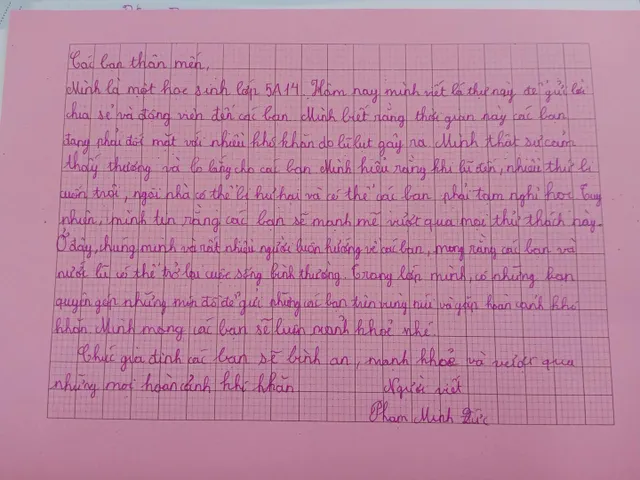 Các bạn thân mến,
Mình là một học sinh lớp 5A14. Hôm nay mình viết lá thư này để gửi lời
chia sẻ và động viên đến các bạn. Mình biết rằng thời gian này các bạn
đang phải đối mặt với nhiều khó khăn do lũ lụt gây ra. Mình thật sự cảm
thấy thương và lo lắng cho các bạn. Mình hiểu rằng khi lũ đến, nhiều thứ bị
cuốn trôi, ngôi nhà có thể bị hư hại và có thể các bạn phải tạm nghỉ học. Tuy
nhiên, mình tin rằng các bạn sẽ mạnh mẽ vượt qua mọi thử thách này.
Ở đây, chúng mình và rất nhiều người luôn hướng về các bạn, mong rằng các bạn và
nước lũ có thể trở lại cuộc sống bình thường. Trong lớp mình, có những bạn
quyên góp những món đồ để gửi những các bạn trên vùng núi và gặp hoàn cảnh khó
khăn. Mình mong các bạn sẽ luôn mạnh khoẻ nhé.
Chúc gia đình các bạn sẽ bình an, mạnh khoẻ và vượt qua
những mọi hoàn cảnh khó khăn
Người viết
Phạm Minh Đức